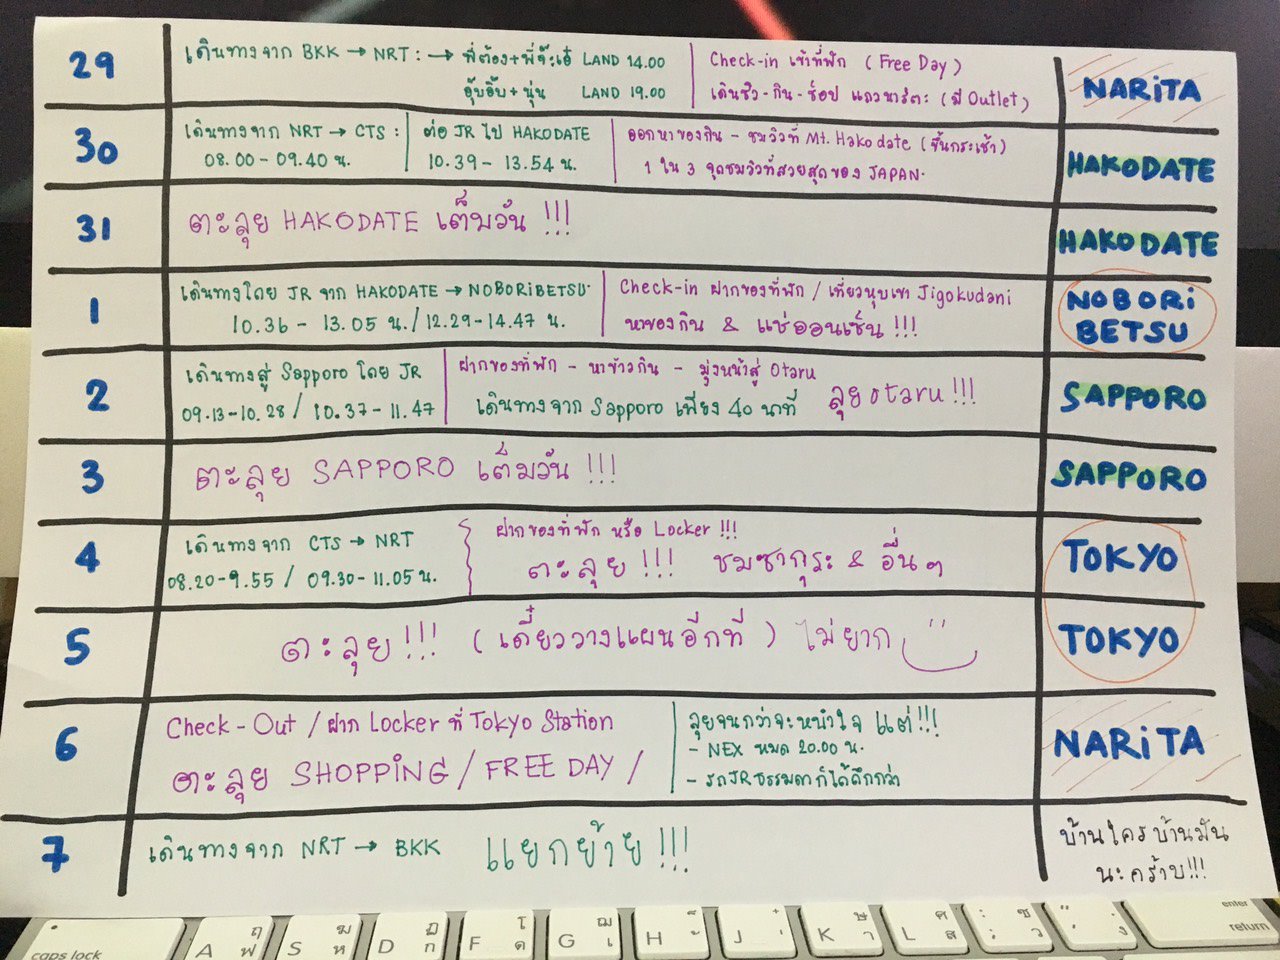 29
เดินทางจาก BKK → NRT : → พี่ต้อง+พี่จ๊ะเอ๋ LAND 14.00
อุ๊บอิ๊บ + นุ่น LAND 19.00
Check-in เข้าที่พัก (Free Day)
เดินชิว-กิน-ช็อป แถวนาริตะ (มี Outlet)
NARiTA
30
เดินทางจาก NRT → CTS :
08.00 - 09.40 น.
ต่อ JR ไป HAKODATE
10.39 - 13.54 น.
ออกหาของกิน - ชมวิวที่ Mt. Hakodate (ขึ้นกระเช้า)
1 ใน 3 จุดชมวิวที่สวยสุดของ JAPAN.
HAKODATE
31
ตะลุย HAKODATE เต็มวัน !!!
HAKODATE
1
เดินทางโดย JR จาก HAKODATE → NOBORiBETSU.
10.36 - 13.05 น./12.29-14.47 น.
Check-in ฝากของที่พัก / เที่ยวหุบเขา Jigokudani
หาของกิน & แช่ออนเซ็น !!!
NOBORi
BETSU
2
เดินทางสู่ Sapporo โดย JR
09.13-10.28 / 10.37-11.47
ฝากของที่พัก - หาข้าวกิน - มุ่งหน้าสู่ Otaru
เดินทางจาก Sapporo เพียง 40 นาที
ลุย otaru !!!
SAPPORO
3
ตะลุย SAPPORO เต็มวัน !!!
SAPPORO
4
เดินทางจาก CTS → NRT
08.20-9.55 / 09.30-11.05 น.
ฝากของที่พัก หรือ Locker !!!
ตะลุย !!! ชมซากุระ & อื่นๆ
TOKYO
5
ตะลุย !!! (เดี๋ยววางแผนอีกที) ไม่ยาก
TOKYO
6
Check-Out / ฝาก Locker ที่ Tokyo Station
ตะลุย SHOPPiNG / FREE DAY /
ลุยจนกว่าจะหนำใจ แต่!!!
- NEX หมด 20.00 น.
- รถJRธรรมดาก็ได้ดึกกว่า
NARiTA
7
เดินทางจาก NRT → BKK แยกย้าย !!!
บ้านใครบ้านมัน
นะคร้าบ!!!
caps lock
A ฤ ฟ
S ฆ ห
D ฏ ก
F โ ด
G ฌ เ
H ็ ้
J ๋ ่
K ษ า
L ศ ส
: ; ซ ว
" ' . ง
enter
return